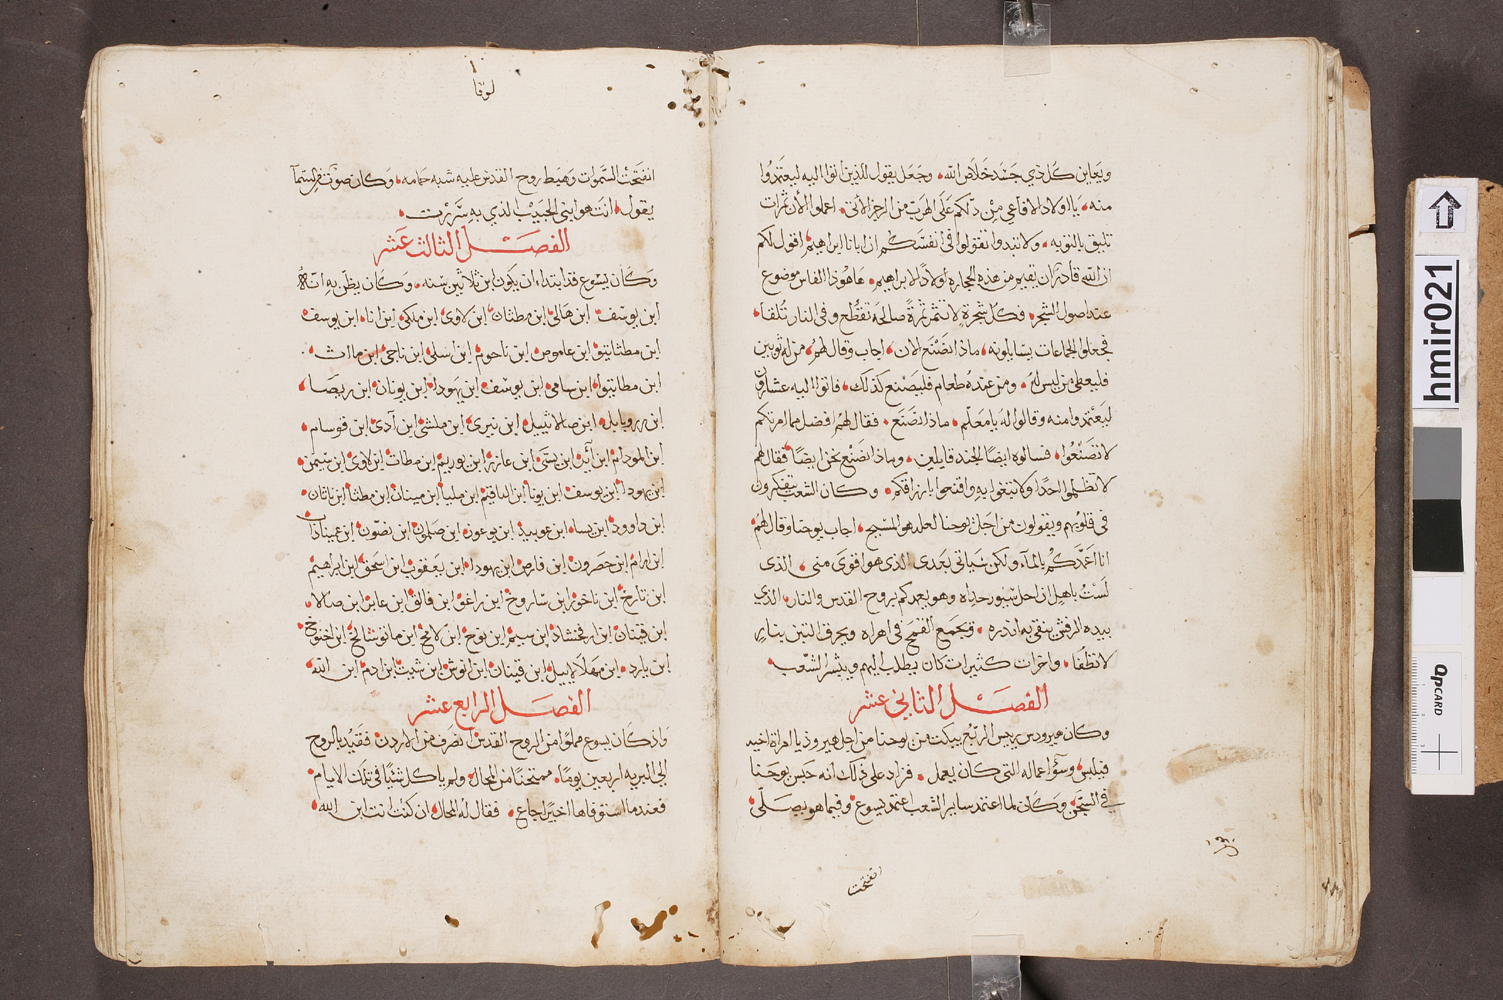 ويعاين كل ذي جسد خلاص الله، وجعل يقول للذين اتوا اليه ليعتمدوا
منه، يا اولاد الافاعي من دلكم على الهرب من الرجز الاتي، اعملوا الان ثمرات
تليق بالتوبه، ولا تبدوا تقولوا في انفسكم ان ابانا ابراهيم، اقول لكم
ان الله قادر ان يقيم من هذه الحجاره اولادًا لابراهيم، هاهوذا الفاس موضوع
عند اصول الشجر، وكل شجرةٍ لا تثمر ثمرةً صالحة تقطع وفي النار تلقا،
فجعلوا الجماعات يسايلونه، ماذا نصنع الان، اجاب وقال لهم، من له ثوبين
فليعطي من ليس له، ومن عنده طعام فليصنع كذلك، فاتوا اليه عشارون
ليعتمدوا منه وقالوا له يا معلم، ماذا نصنع، فقال لهم افضل مما امرتكم
لا تصنعوا، فسالوه ايضًا الجند قايلين، وماذا نصنع نحن ايضًا، فقال لهم
لا تظلموا احدًا ولا تبغوا به واقنعوا بارزاقكم، وكان الشعب يفكرون
في قلوبهم ويقولون من اجل يوحنا لعله هو المسيح، اجاب يوحنا وقال لهم
انا اعمدكم بالماء ولكن سياتي بعدي الذي هو اقوى مني، الذي
لست باهل ان احل سيور حذاه وهو يعمدكم بروح القدس والنار، الذي
بيده الرفش ينقي به اندره، ويجمع القمح في اهراه ويحرق التبن بنار
لا تطفا، واخرات كثيرات كان يطلب اليهم ويبشر الشعب،
الفصل الثاني عشر
وكان هيرودس رييس الربع يبكت من يوحنا من اجل هيروديا امراة اخيه
فيلبس، وسؤ اعماله التي كان يعمل، فزاد على ذلك انه حبس يوحنا
في السجن، وكان لما اعتمد ساير الشعب اعتمد يسوع، وفيما هو يصلي
انفتحت
لوقا
انفتحت السموات وهبط روح القدس عليه شبه حمامه، وكان صوت من السما
يقول، انت هو ابني الحبيب الذي به سررت،
الفصل الثالث عشر
وكان يسوع قد ابتداء ان يكون ابن ثلاثين سنه، وكان يظن به انه
ابن يوسف ابن هالي ابن مطثان ابن لاوي ابن ملكي ابن انا، ابن يوسف
ابن مطثاتيو ابن عاموص ابن ناحوم ابن اسلي ابن ناحي ابن مااث
ابن مطاتيوا ابن سامي ابن يوسف ابن يهودا، ابن يونان ابن ريصا،
ابن زروبابل، ابن صالاثييل ابن نيري ابن ملشي ابن آدي ابن قوسام،
ابن المودام ابن آير ابن يشي ابن عازر ابن يوريم ابن مطاث ابن لاوي ابن شمعن
ابن يهودا ابن يوسف ابن يونا ابن الياقيم ابن مليا ابن مينان ابن مطثا ابن ناثان،
ابن داوود ابن يسا، ابن عوبيد ابن بوعز، ابن صلمون ابن نصون ابن عميناداب
ابن ارام ابن حصرون ابن فارص ابن يهودا، ابن يعقوب ابن اسحق ابن ابراهيم
ابن تارخ ابن ناخور ابن ساروخ ابن راغو ابن فالق ابن عابر ابن صالا،
ابن قينان ابن ارفخشاد ابن سيم ابن نوح ابن لامخ ابن ماتوشالخ ابن اخنوخ
ابن يارد، ابن مهلالاييل ابن قينان ابن انوش ابن شيث ابن ادم ابن الله،
الفصل الرابع عشر
واذ كان يسوع مملوًا من الروح القدس انصرف من الاردن، فقيد بالروح
الى البريه اربعين يومًا، ممتحنًا من المحال، ولم ياكل شيًا في تلك الايام،
فعندما استوفاها اخيرًا جاع، فقال له المحال ان كنت انت ابن الله،
hmir021
QPCARD